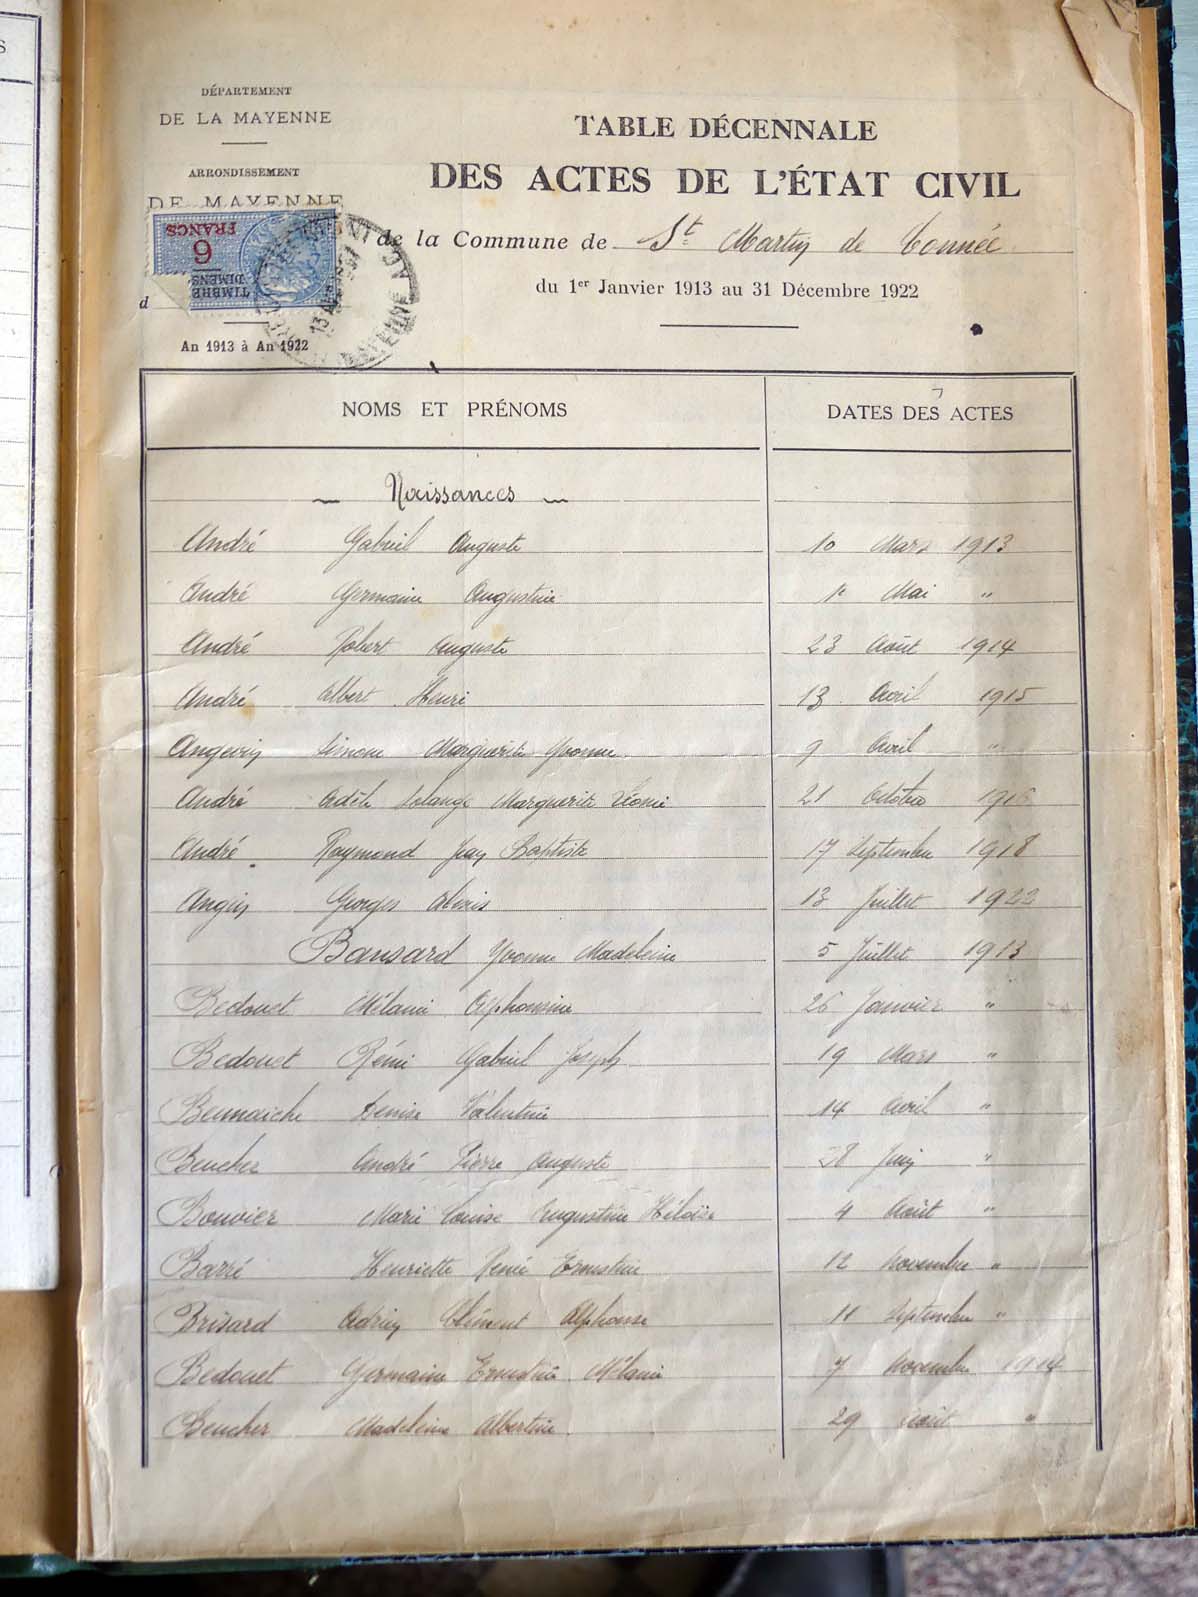 DÉPARTEMENT
DE LA MAYENNE
ARRONDISSEMENT
DE MAYENNE
6
FRANCS
TIMBRE
DIMENS
d
An 1913 à An 1922
TABLE DÉCENNALE
DES ACTES DE L'ÉTAT CIVIL
de la Commune de St Martin de Connée
du 1er Janvier 1913 au 31 Décembre 1922
NOMS ET PRÉNOMS DATES DES ACTES
Naissances
André Gabriel Auguste 10 Mars 1913
André Germaine Augustine Mai "
André Robert Auguste 23 Août 1914
André Albert Henri 13 Avril 1915
Angevin Simone Marguerite Yvonne 9 Avril "
André Adèle Solange Marguerite Léonie 21 Octobre 1916
André Raymond Jean Baptiste 17 Septembre 1918
Angin Georges Alexis 13 Juillet 1922
Bansard Yvonne Madeleine 5 Juillet 1913
Bedouet Mélanie Alphonsine 26 Janvier "
Bedouet Rémi Gabriel Joseph 19 Mars "
Bennaiche Denise Valentine 14 Avril "
Beucher André Pierre Auguste 28 Juin "
Bouvier Marie Louise Augustine Héloïse 4 Août "
Barré Henriette Renée Ernestine 12 Novembre "
Brisard Adrien Clément Alphonse 11 Septembre "
Bedouet Germaine Ernestine Mélanie 7 Novembre 1914
Beucher Madeleine Albertine 29 Août "